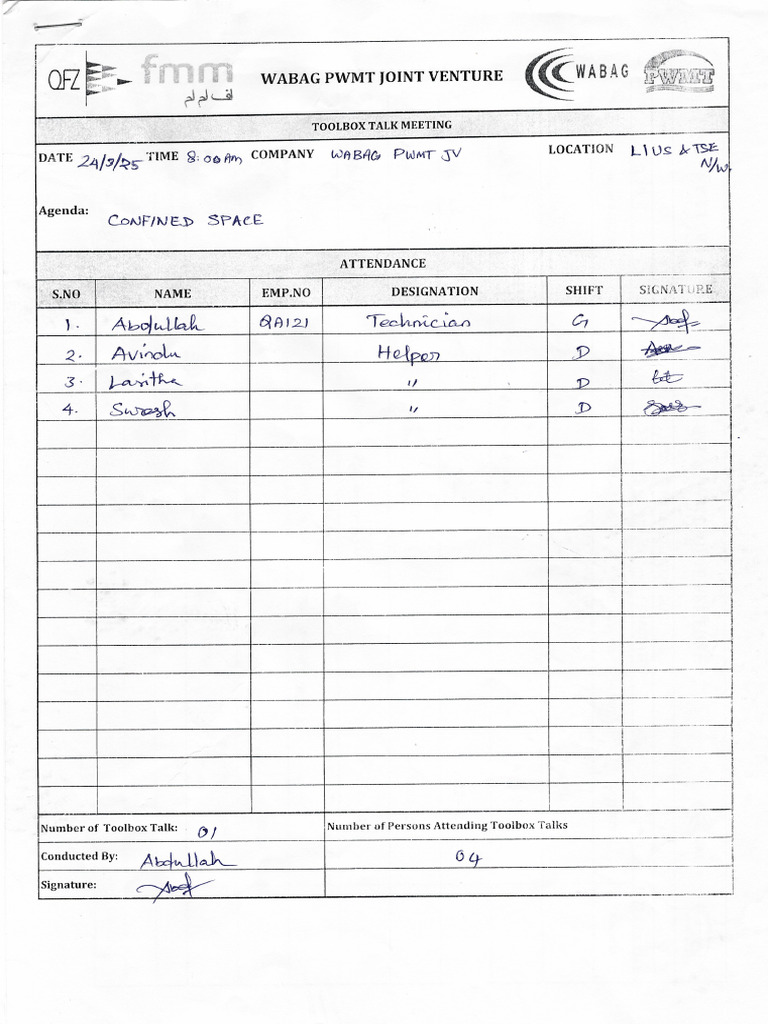 QFZ fmm WABAG PWMT JOINT VENTURE WABAG PWMT
اف ام ام
TOOLBOX TALK MEETING
DATE 24/9/25 TIME 8:00AM COMPANY WABAG PWMT JV LOCATION LIUS & TSE
N/W.
Agenda: CONFINED SPACE
ATTENDANCE
S.NO NAME EMP.NO DESIGNATION SHIFT SIGNATURE
1. Abdullah QA121 Technician G
2. Avindu Helper D
3. Lasitha " D
4. Suresh " D
Number of Toolbox Talk: 01 Number of Persons Attending Toolbox Talks
Conducted By: Abdullah 04
Signature: